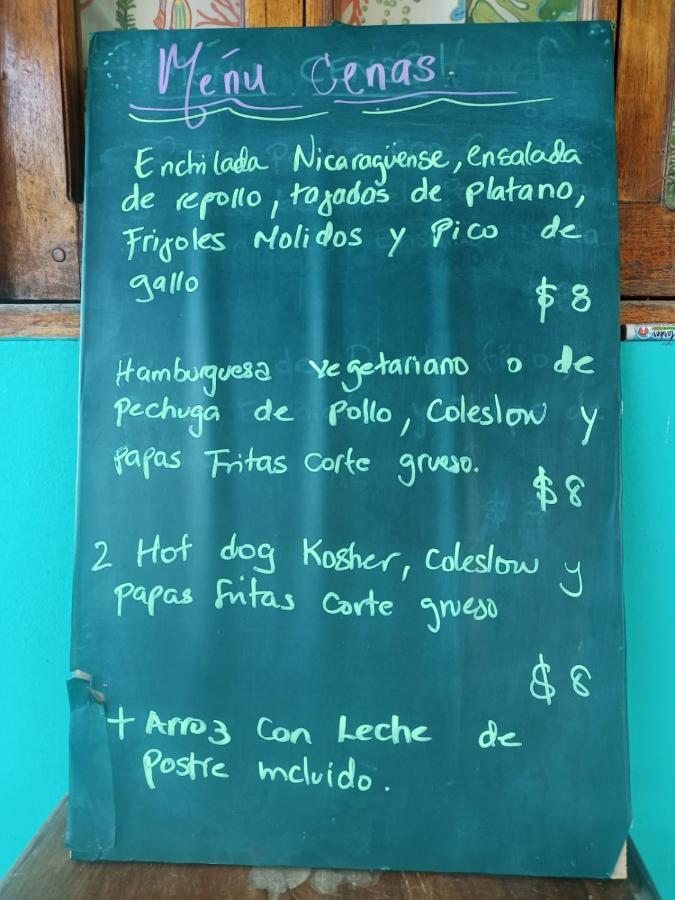 Menu Cenas
Enchilada Nicaragüense, ensalada
de repollo, tajadas de platano,
Frijoles Molidos y Pico de
gallo
$ 8
Hamburguesa vegetariano o de
pechuga de pollo, Coleslow y
papas Fritas Corte grueso.
$ 8
2 Hot dog Kosher, Coleslow y
papas fritas Corte grueso
$ 8
+ Arroz Con Leche de
postre incluido.